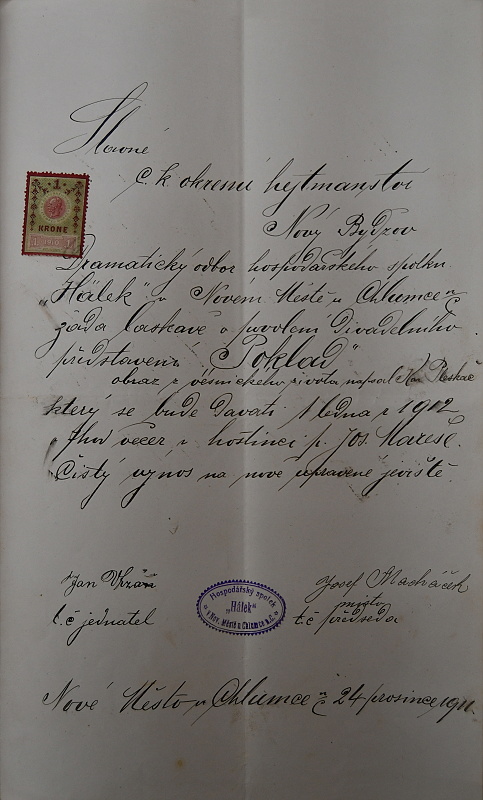 Slavné
C. k. okresní hejtmanství
Nový Bydžov
1
KRONE
Dramatický odbor hospodářského spolku
„Hálek" v Novém Městě u Chlumce n/C
žádá laskavě o povolení divadelního
představení „Poklad"
obraz z věsnického života napsal Kar. Pleskač
který se bude davati 1 ledna r 1912
hod večer v hostinci p. Jos. Mareše.
Čistý výnos na nově upravené jeviště.
Jan
t. č jednatel
Hospodářský spolek
„Hálek"
v Nov. Městě u Chlumce n.C.
Josef Macháček
místo
t č předseda
Nové Město u Chlumce n/C 24 prosince 1911